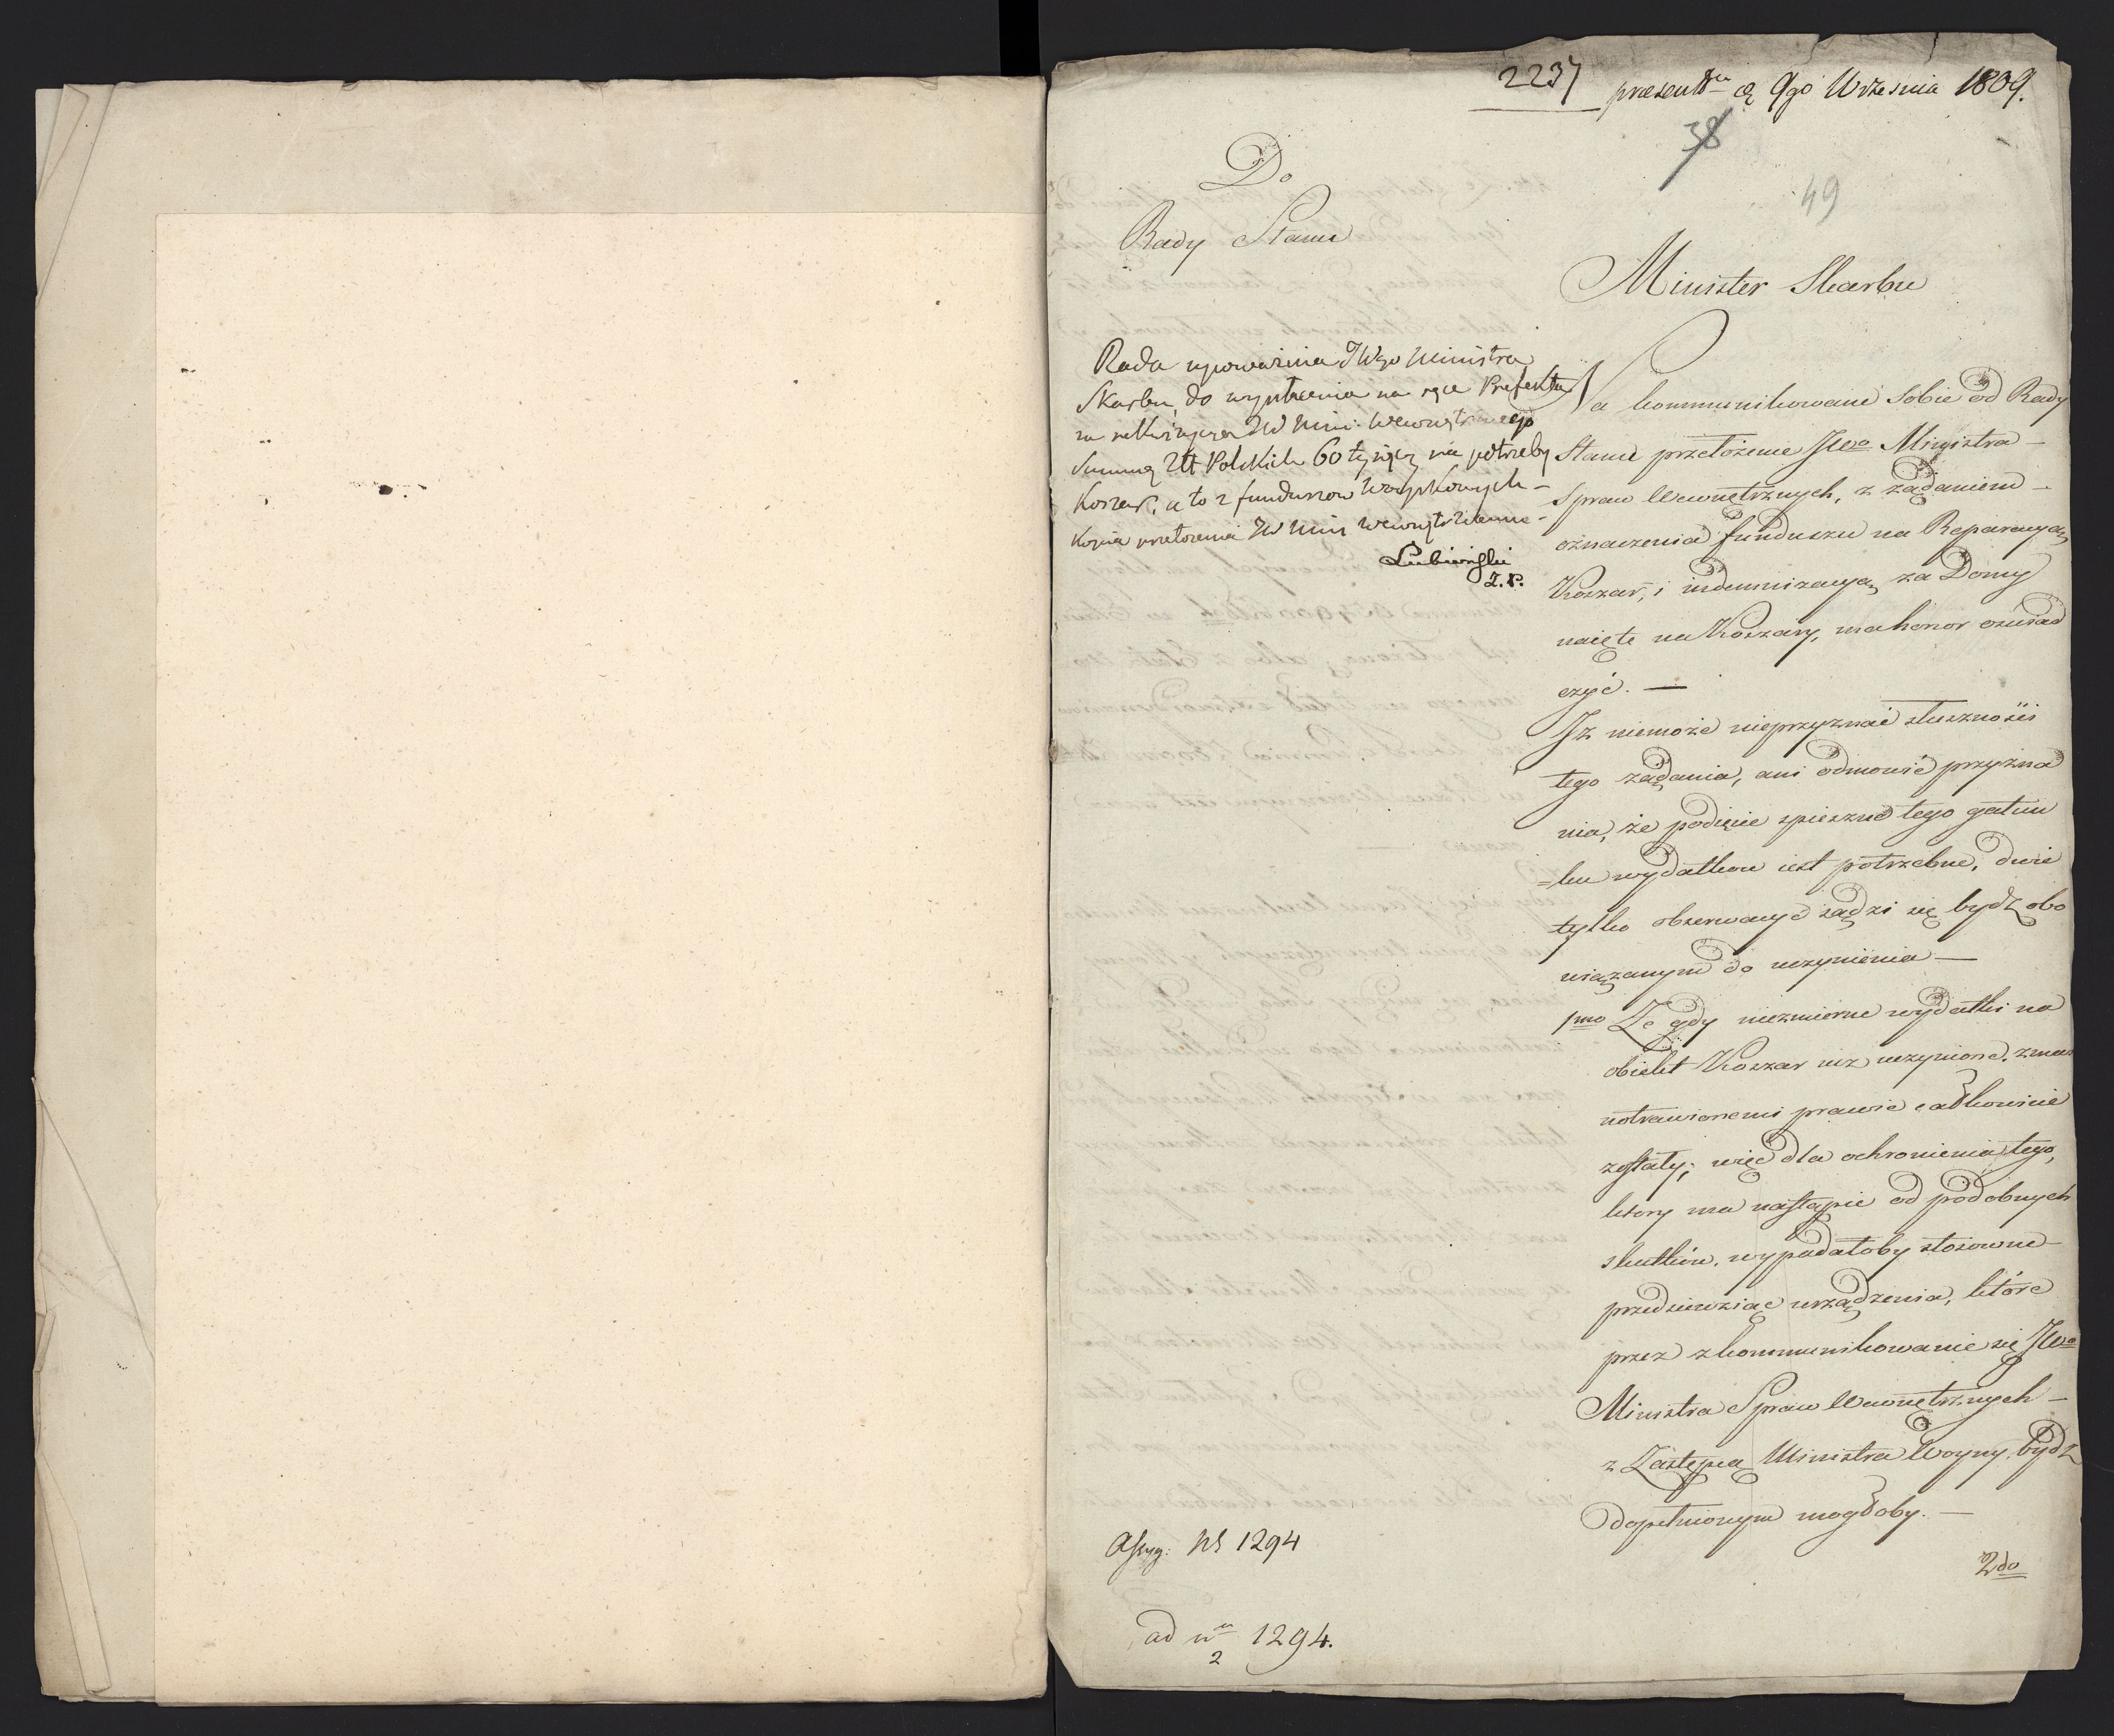 2237 praesent d. 9go Września 1809.
38
49
Do
Rady Stanu
Minister Skarbu
Rada upoważnia JWgo Ministra
Skarbu, do wypłacenia na ręce Prefekta
na rekwizycyą JW Mini: Wewnętrznego
Summę Złł Polskich 60 tysięcy na potrzeby
Koszar, a to z funduszow Woyskowych –
Kopia przełożenia JW Min Wewnętrznemu –
Lubieński
Z. P.
Na kommunikowane sobie od Rady
Stanu przełożenie JWo Ministra –
Spraw Wewnętrznych, z żądaniem –
oznaczenia funduszu na Reparacyą
Koszar, i indemnizacyą za Domy
naięte na Koszary, ma honor oświad
czyć. —
Iż niemoże nieprzyznać słusznośći
tego żądania, ani odmowić przyzna
nia, że podięcie spieszne tego gatun
=ku wydatkow iest potrzebne, dwie
tylko obserwacye sądzi się bydź obo
wiązanym do uczynienia —
1mo Że gdy niezmierne wydatki na
obiekt Koszar iuż uczynione,
zmarnotrawionemi prawie całkowicie
zostały; więc dla ochronienia tego,
ktory ma nastąpić od podobnych
skutków, wypadałoby stosowne –
przedsiewziąć urządzenia, które
przez zkommunikowanie się JWo
Ministra Spraw Wewnętrznych –
z Zastępcą Ministra Woyny, bydź
dopełnionym mogłoby. —
2do
Assyg: No 1294
ad nr 1294.
2